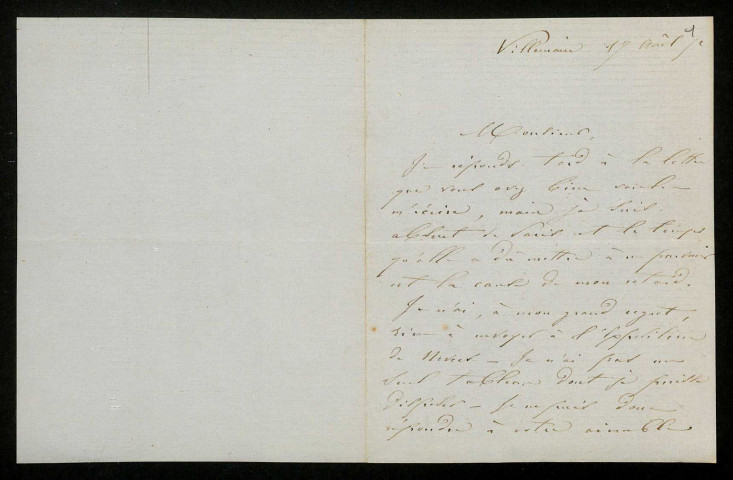 17 Août
Monsieur,
Je réponds tard à la lettre
que vous avez bien voulu
m'écrire, mais je suis
absent de Paris et le temps
qu'elle a dû mettre à me parvenir
est la cause de mon retard.
Je n'ai, à mon grand regret,
rien à envoyer à l'Exposition
de Nevers — Je n'ai pas un
seul tableau dont je puisse
disposer — Je ne puis donc
répondre à votre aimable